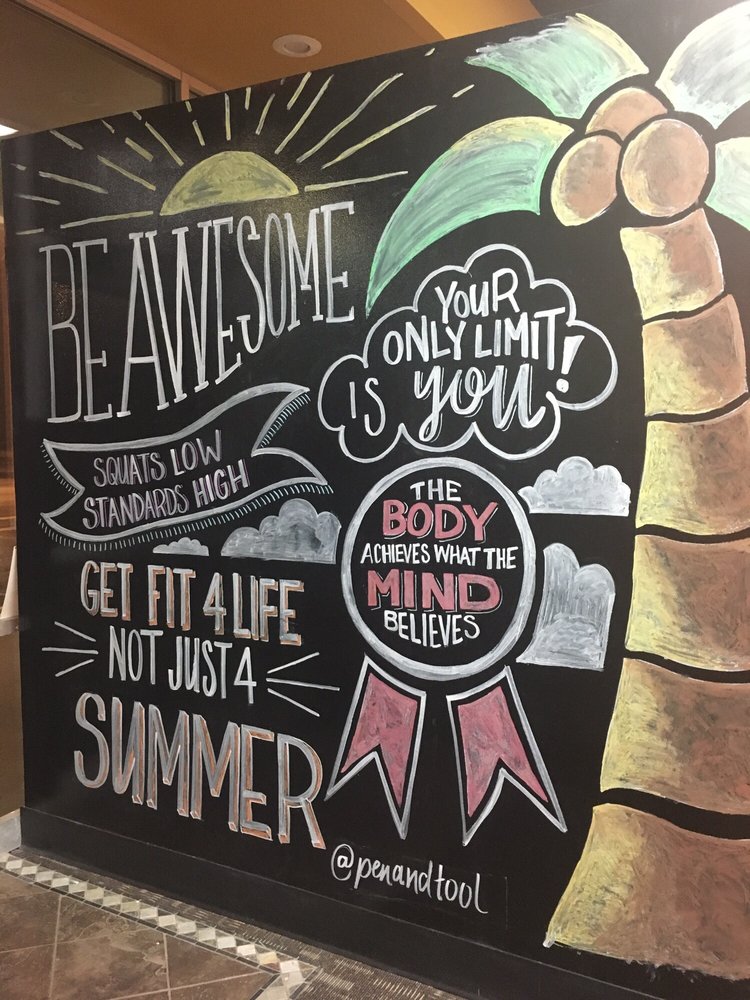 BE AWESOME
YOUR
ONLY LIMIT
IS you!
SQUATS LOW
STANDARDS HIGH
THE
BODY
ACHIEVES WHAT THE
MIND
BELIEVES
GET FIT 4 LIFE
NOT JUST 4
SUMMER
@penandtool